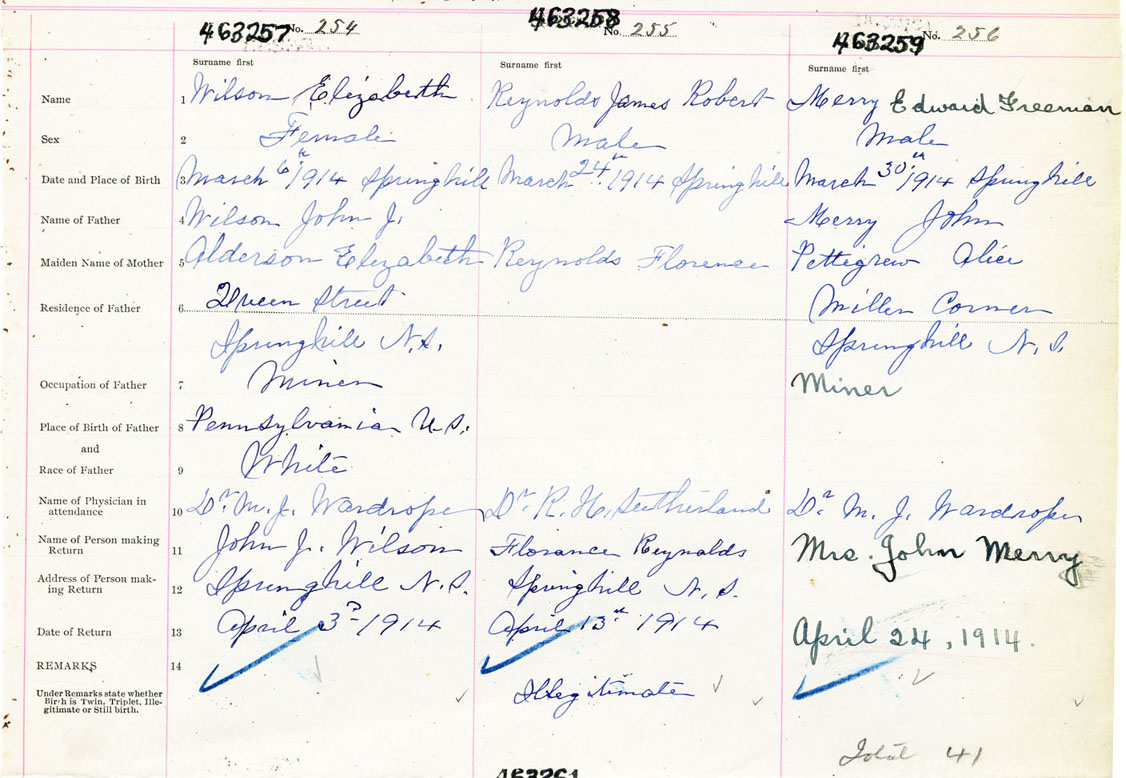 463257 No. 254 463258 No. 255 463259 No. 256
Surname first Surname first Surname first
Name 1 Wilson Elizabeth Reynolds James Robert Merry Edward Freeman
Sex 2 Female Male Male
Date and Place of Birth 3 March 6th/1914 Springhill March 24th/1914 Springhill March 30th/1914 Springhill
Name of Father 4 Wilson John J. Merry John
Maiden Name of Mother 5 Alderson Elizabeth Reynolds Florence Pettigrew Alice
Residence of Father 6 Queen Street Miller Corner
Springhill N.S. Springhill N.S.
Occupation of Father 7 Miner Miner
Place of Birth of Father 8 Pennsylvania U.S.
and
Race of Father 9 White
Name of Physician in
attendance 10 Dr. M. J. Wardrope Dr. R. H. Sutherland Dr. M. J. Wardrope
Name of Person making
Return 11 John J. Wilson Florance Reynolds Mrs. John Merry
Address of Person mak-
ing Return 12 Springhill N.S. Springhill N.S.
Date of Return 13 April 3rd/1914 April 13th 1914 April 24, 1914.
REMARKS 14
Under Remarks state whether
Birth is Twin, Triplet, Ille-
gitimate or Still birth. Illegitimate
Total 41
463261